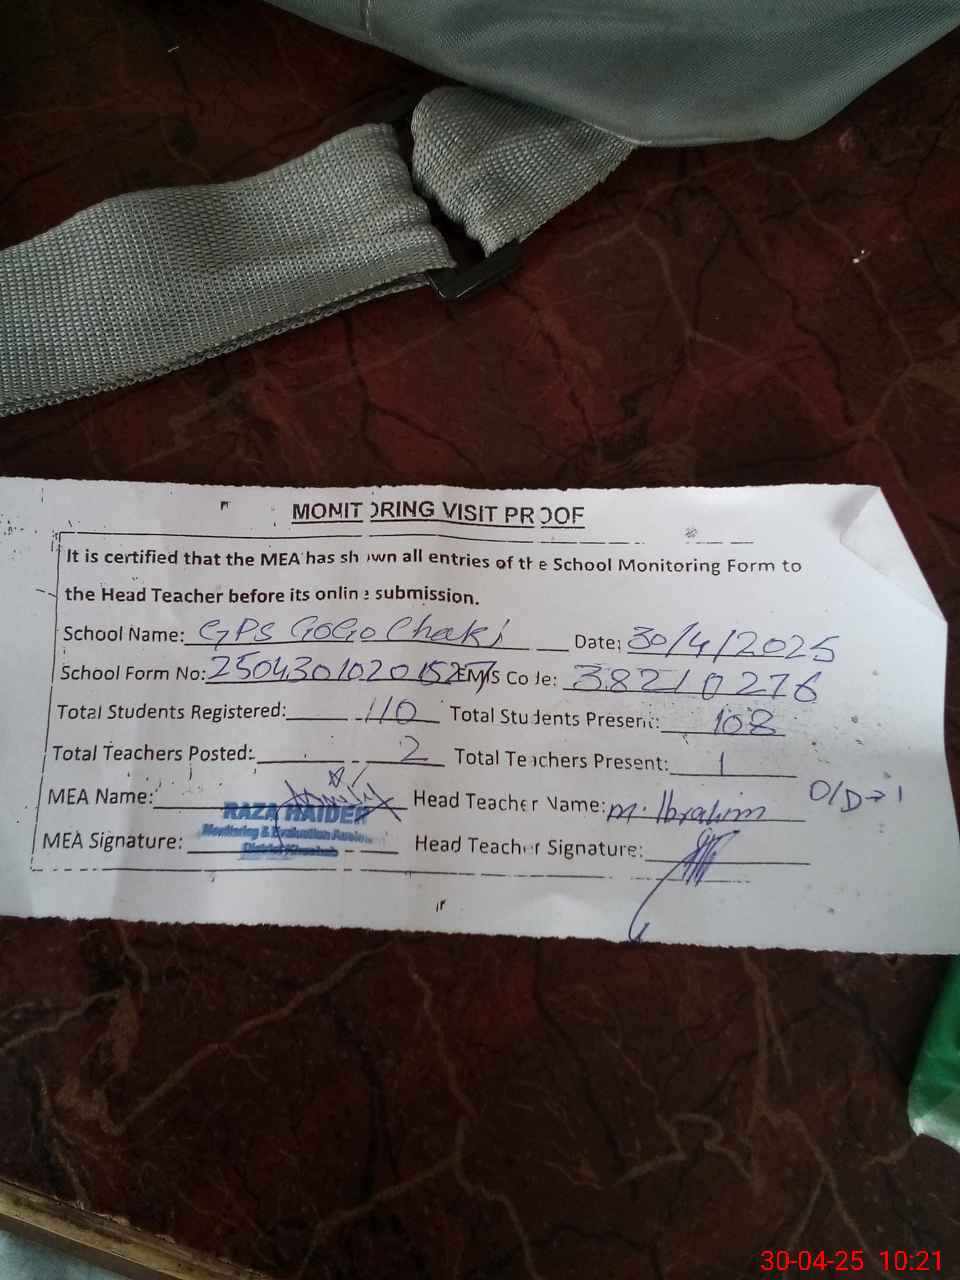 MONITORING VISIT PROOF
It is certified that the MEA has shown all entries of the School Monitoring Form to
the Head Teacher before its online submission.
School Name: GPS GoGo Chaki Date: 30/4/2025
School Form No: EMIS Code: 38210276
Total Students Registered: 110 Total Students Present: 108
Total Teachers Posted: 2 Total Teachers Present: 1
MEA Name: Head Teacher Name: M. Ibrahim O/D→1
RAZA HAIDER
Monitoring & Evaluation
MEA Signature: Head Teacher Signature:
District Khushab
30-04-25 10:21